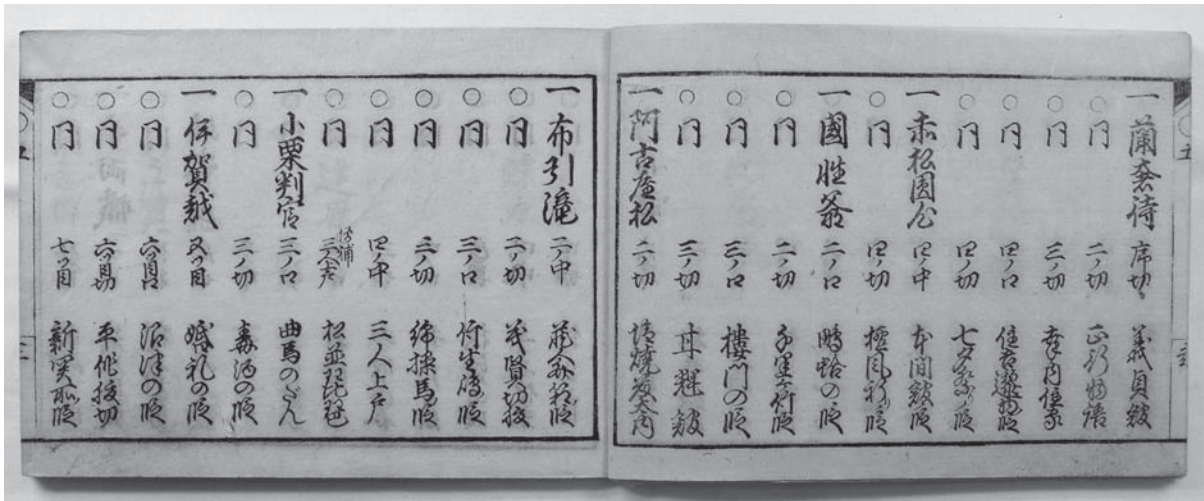 一 蘭奢待 序切 義貞館
○ 同 二ノ切 正行物語
○ 同 三ノ切 幸内住家
○ 同 四ノ口 住吉
○ 同 四ノ切 七夕祭ノ段
一 赤松円心 四ノ中 本間館段
○ 同 四ノ切 檀風祈ノ段
一 國性爺 二ノ口 鴫蛤の段
○ 同 二ノ切 千里ヶ竹段
○ 同 三ノ口 樓門の段
○ 同 三ノ切 甘輝館
一 阿古屋松 二ノ切
一 布引滝 二ノ中
○ 同 二ノ切 義賢切腹
○ 同 三ノ口 竹生嶋段
○ 同 三ノ切 綿操馬段
○ 同 四ノ中 三人上戸
○ 同 松並琵琶
一 小栗判官 三ノ口 曲馬のだん
○ 同 三ノ切 毒酒の段
一 伊賀越 五つ目 婚礼の段
○ 同 六つ目口 沼津の段
○ 同 六つ目切 平作腹切
○ 同 七つ目 新関所段